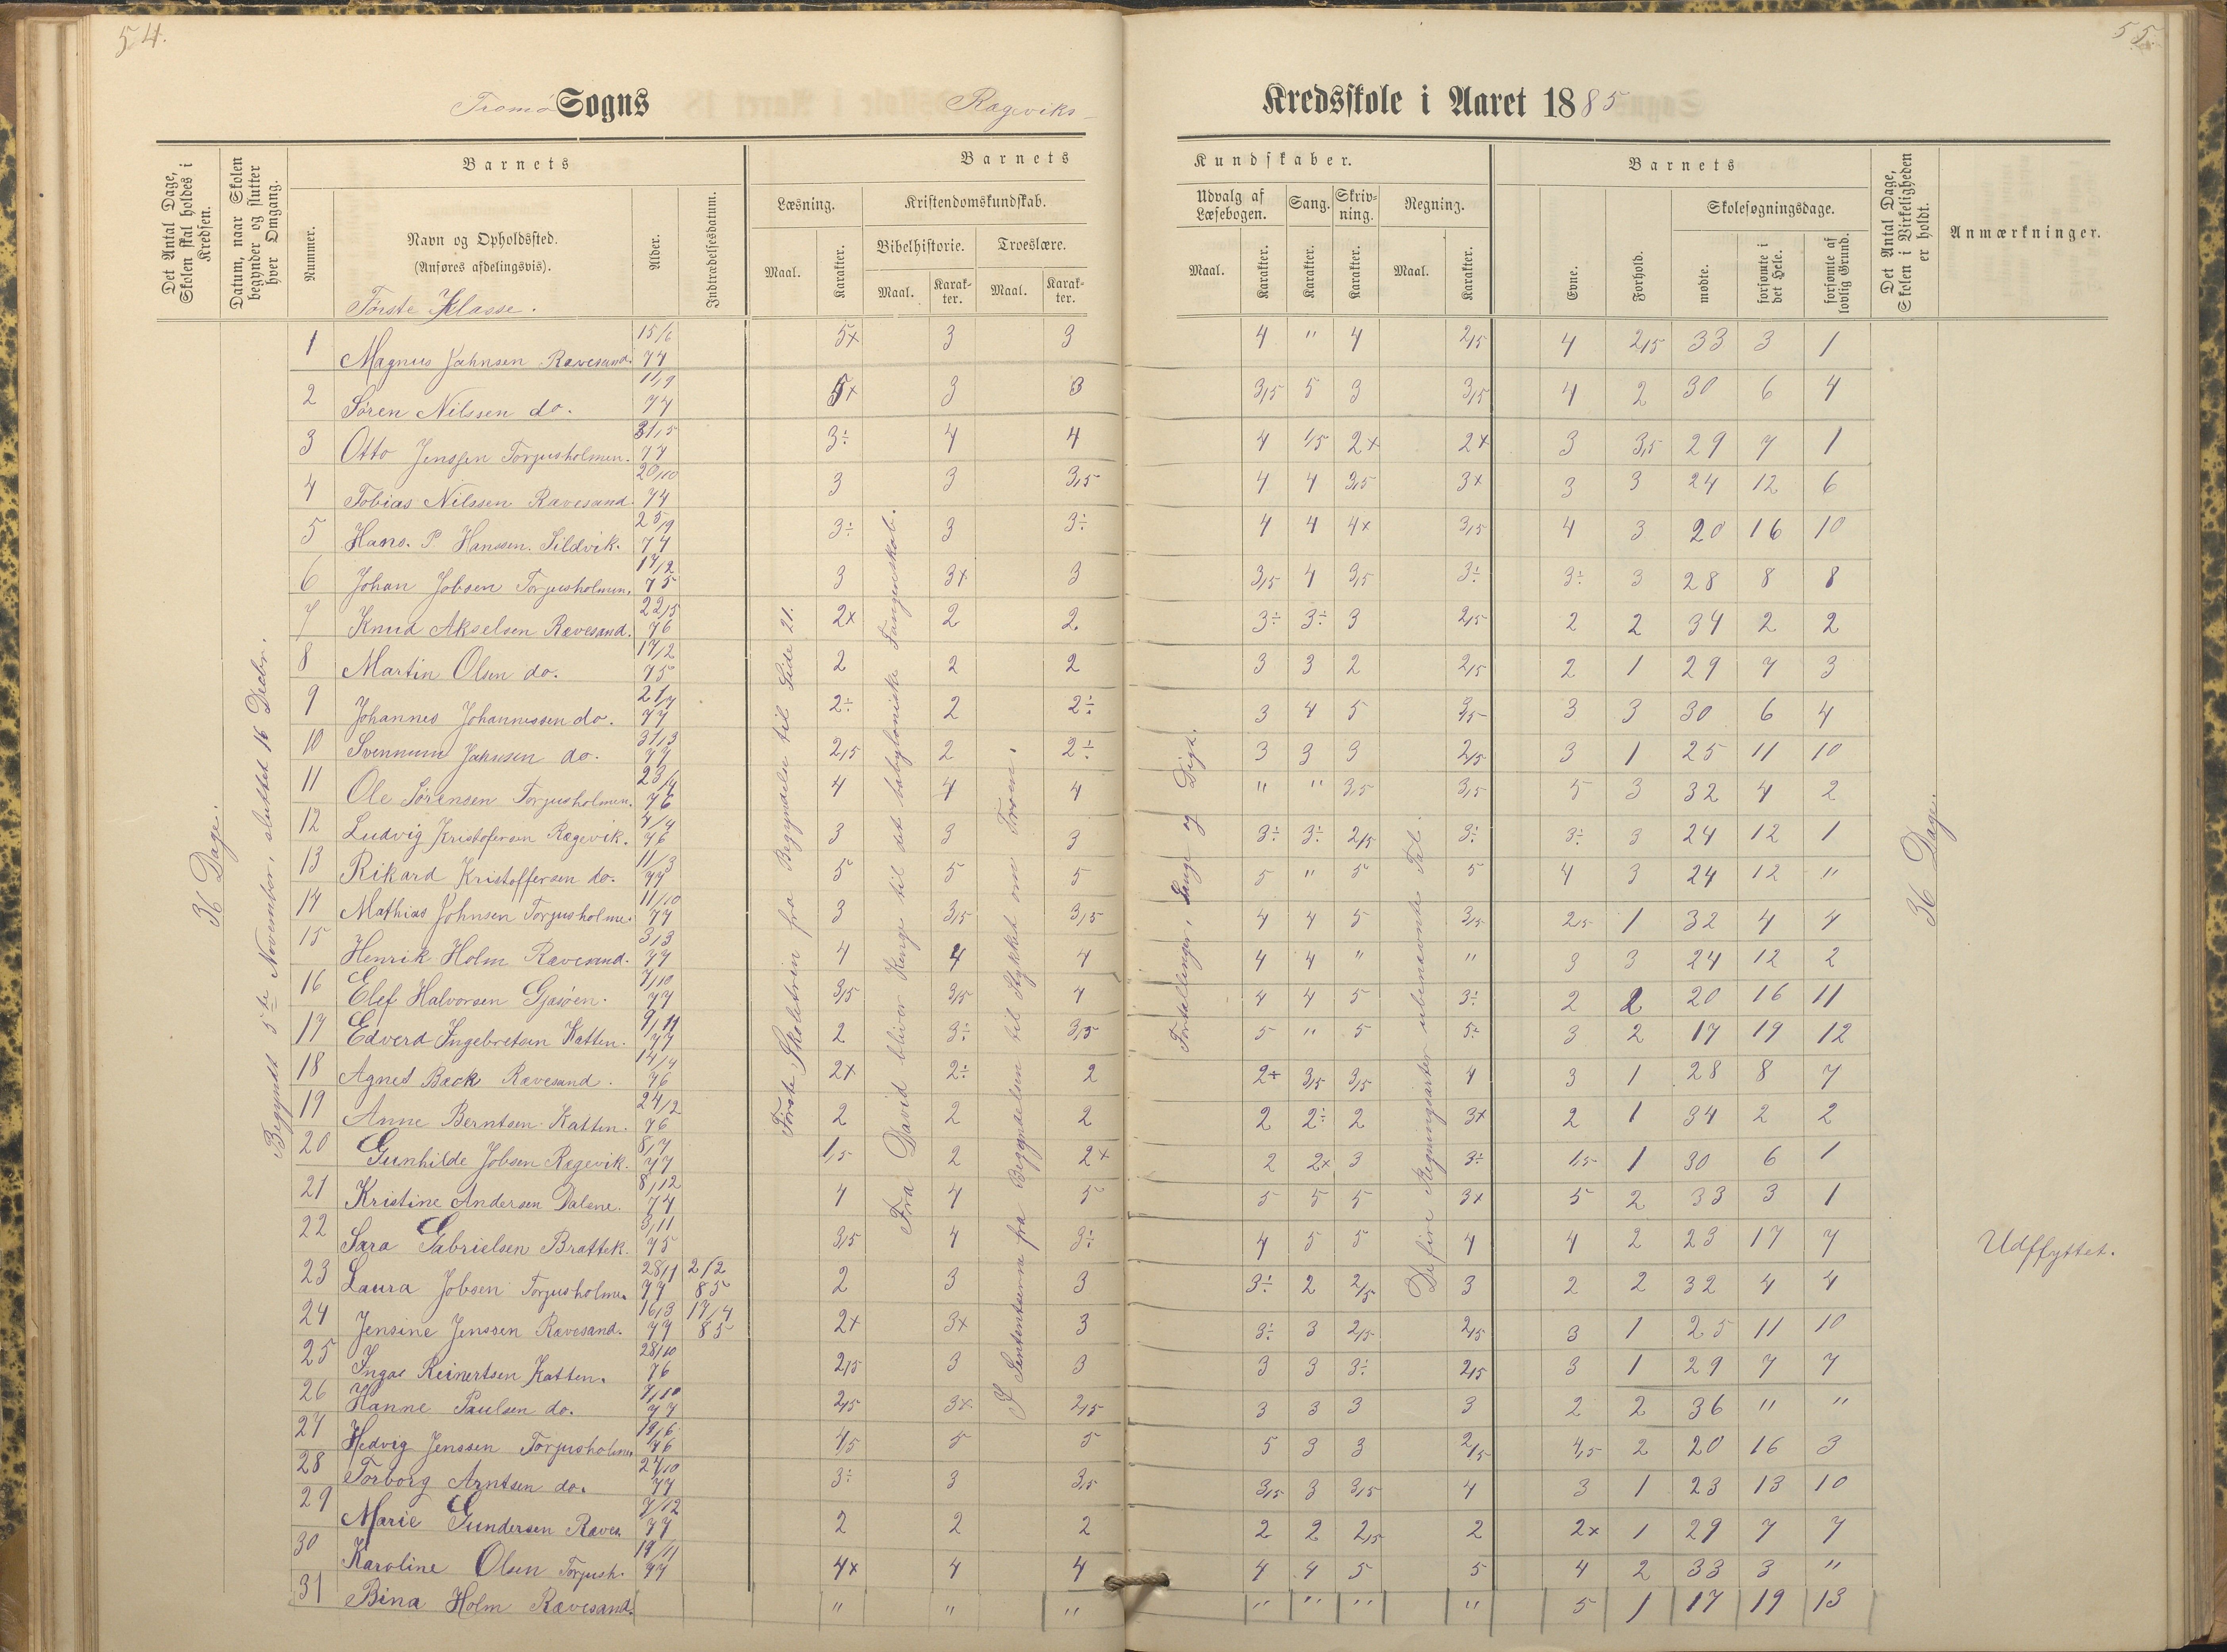 54.
55.
Tromø Sogns Rægeviks Kredsskole i Aaret 1885
Det Antal Dage, Skolen skal holdes i Kredsen.
Datum, naar Skolen begynder og slutter hver Omgang.
Barnets
Nummer.
Navn og Opholdssted. (Anføres afdelingsvis).
Alder.
Indtrædelsesdatum.
Barnets Kundskaber.
Læsning.
Maal.
Karakter.
Kristendomskundskab.
Bibelhistorie.
Maal.
Karakter.
Troeslære.
Maal.
Karakter.
Udvalg af Læsebogen.
Maal.
Karakter.
Sang.
Karakter.
Skrivning.
Karakter.
Regning.
Maal.
Karakter.
Barnets
Evne.
Forhold.
Skolesøgningsdage.
mødte.
forsømte i det Hele.
forsømte af lovlig Grund.
Det Antal Dage, Skolen i Virkeligheden er holdt.
Anmærkninger.
Første Klasse.
36 Dage.
Begyndt 5te November, sluttet 16 Decbr.
Første Skoletrin fra Begyndelsen til Side 21.
Fra David bliver Konge til det babyloniske Fangenskab.
I Sententserne fra Begyndelsen til Stykket om Troen.
Fortællinger, Sange og Digt.
De fire Regningsarter ubenævnte Tal.
36 Dage.
1 Magnus Jahnsen Ravesand. 15/6 77 5x 3 3 4 " 4 2,5 4 2,5 33 3 1
2 Søren Nilssen do. 11/9 74 5x 3 3 3,5 5 3 3,5 4 2 30 6 4
3 Otto Jenssen Torjusholmen. 31/5 77 3÷ 4 4 4 1,5 2x 2x 3 3,5 29 7 1
4 Tobias Nilssen Ravesand. 20/10 74 3 3 3,5 4 4 3,5 3x 3 3 24 12 6
5 Hans. P. Hanssen. Sildvik. 25/9 74 3÷ 3 3÷ 4 4 4x 3,5 4 3 20 16 10
6 Johan Jobsen Torjusholmen. 17/2 75 3 3x 3 3,5 4 3,5 3÷ 3÷ 3 28 8 8
7 Knud Akselsen Ravesand. 22/5 76 2x 2 2 3÷ 3÷ 3 2,5 2 2 34 2 2
8 Martin Olsen do. 17/2 75 2 2 2 3 3 2 2,5 2 1 29 7 3
9 Johannes Johannessen do. 21/7 77 2÷ 2 2÷ 3 4 5 3,5 3 3 30 6 4
10 Svennum Jahnsen do. 31/3 77 2,5 2 2÷ 3 3 3 2,5 3 1 25 11 10
11 Ole Sørensen Torjusholmen. 23/4 76 4 4 4 " " 3,5 3,5 5 3 32 4 2
12 Ludvig Kristofersen Rægevik. 4/4 76 3 3 3 3÷ 3÷ 2,5 3÷ 3÷ 3 24 12 1
13 Rikard Kristoffersen do. 11/3 77 5 5 5 5 " 5 5 4 3 24 12 "
14 Mathias Johnsen Torjusholmen 11/10 77 3 3,5 3,5 4 4 5 3,5 2,5 1 32 4 4
15 Henrik Holm Ravesand. 3/3 77 4 4 4 4 4 " " 3 3 24 12 2
16 Elef Halvorsen Gjasøen. 7/10 77 3,5 3,5 4 4 4 5 3÷ 2 2 20 16 11
17 Edverd Ingebretsen Katten. 9/11 77 2 3÷ 3,5 5 " 5 5÷ 3 2 17 19 12
18 Agnes Back Ravesand. 14/4 76 2x 2÷ 2 2x 3,5 3,5 4 3 1 28 8 7
19 Anne Berntsen Katten. 24/2 76 2 2 2 2 2÷ 2 3x 2 1 34 2 2
20 Gunhilde Jobsen Rægevik. 8/7 77 1,5 2 2x 2 2x 3 3÷ 1,5 1 30 6 1
21 Kristine Andersen Dalene. 8/12 74 4 4 5 5 5 5 3x 5 2 33 3 1
22 Sara Gabrielsen Brattek. 3/11 75 3,5 4 3÷ 4 5 5 4 4 2 23 17 7 Udflyttet.
23 Laura Jobsen Torjusholmen 28/1 77 2/2 85 2 3 3 3÷ 2 2,5 3 2 2 32 4 4
24 Jensine Jenssen Ravesand. 16/3 77 17/4 85 2x 3x 3 3÷ 3 2,5 2,5 3 1 25 11 10
25 Inga Reinertsen Katten. 28/10 76 2,5 3 3 3 3 3÷ 2,5 3 1 29 7 7
26 Hanne Paulsen do. 7/10 77 2,5 3x 2,5 3 3 3 3 2 2 36 " "
27 Hedvig Jenssen Torjusholmen 19/6 76 4,5 5 5 5 3 3 2,5 4,5 2 20 16 3
28 Torborg Arntsen do. 27/10 77 3÷ 3 3,5 3,5 3 3,5 4 3 1 23 13 10
29 Marie Gundersen Raves. 7/12 77 2 2 2 2 2 2,5 2 2x 1 29 7 7
30 Karoline Olsen Torjush. 19/11 77 4x 4 4 4 4 5 5 4 2 33 3 "
31 Bina Holm Ravesand. " " " " " " " 5 1 17 19 13